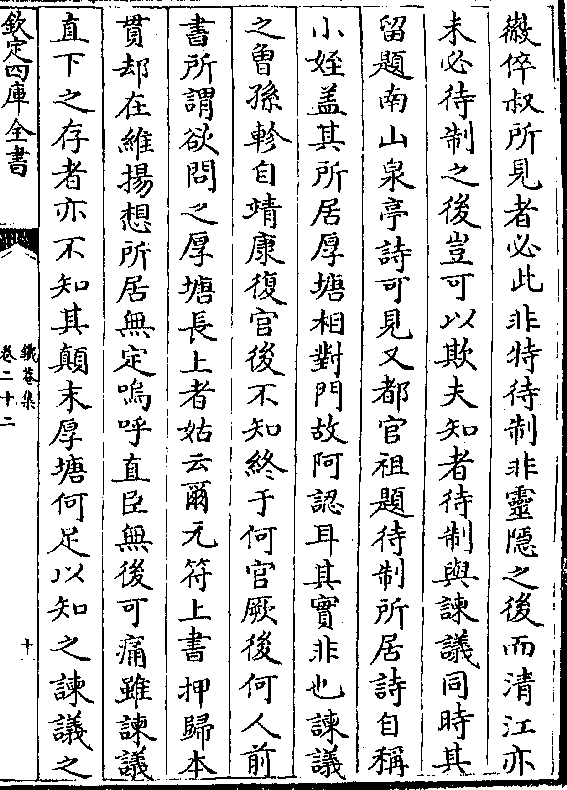 徽倅叔所見者必此非特待制非靈隱之後而清江亦
未必待制之後豈可以欺夫知者待制與諫議同時其
留題南山泉亭詩可見又都官祖題待制所居詩自稱
小姪盖其所居厚塘相對門故阿認耳其實非也諫議
之曾孫軫自靖康復官後不知終于何官厥後何人前
書所謂欲問之厚塘長上者姑云爾元符上書押歸本
貫却在維揚想所居無定嗚呼直臣無後可痛雖諫議
直下之存者亦不知其顛末厚塘何足以知之諫議之
欽定四庫全書
卷二十二
十